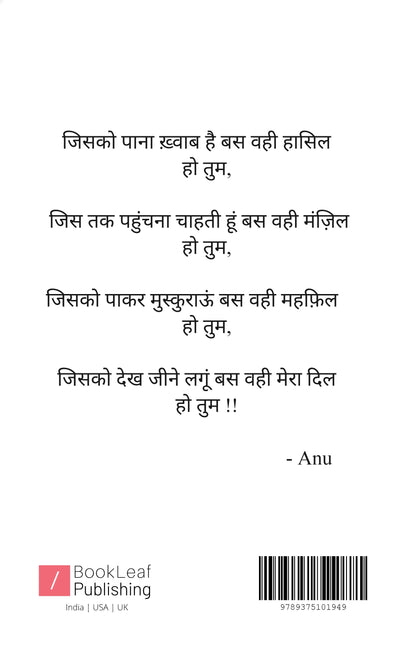 जिसको पाना ख़्वाब है बस वही हासिल
हो तुम,
जिस तक पहुंचना चाहती हूं बस वही मंज़िल
हो तुम,
जिसको पाकर मुस्कुराऊं बस वही महफ़िल
हो तुम,
जिसको देख जीने लगूं बस वही मेरा दिल
हो तुम !!
- Anu
BookLeaf
Publishing
India | USA | UK
9789375101949